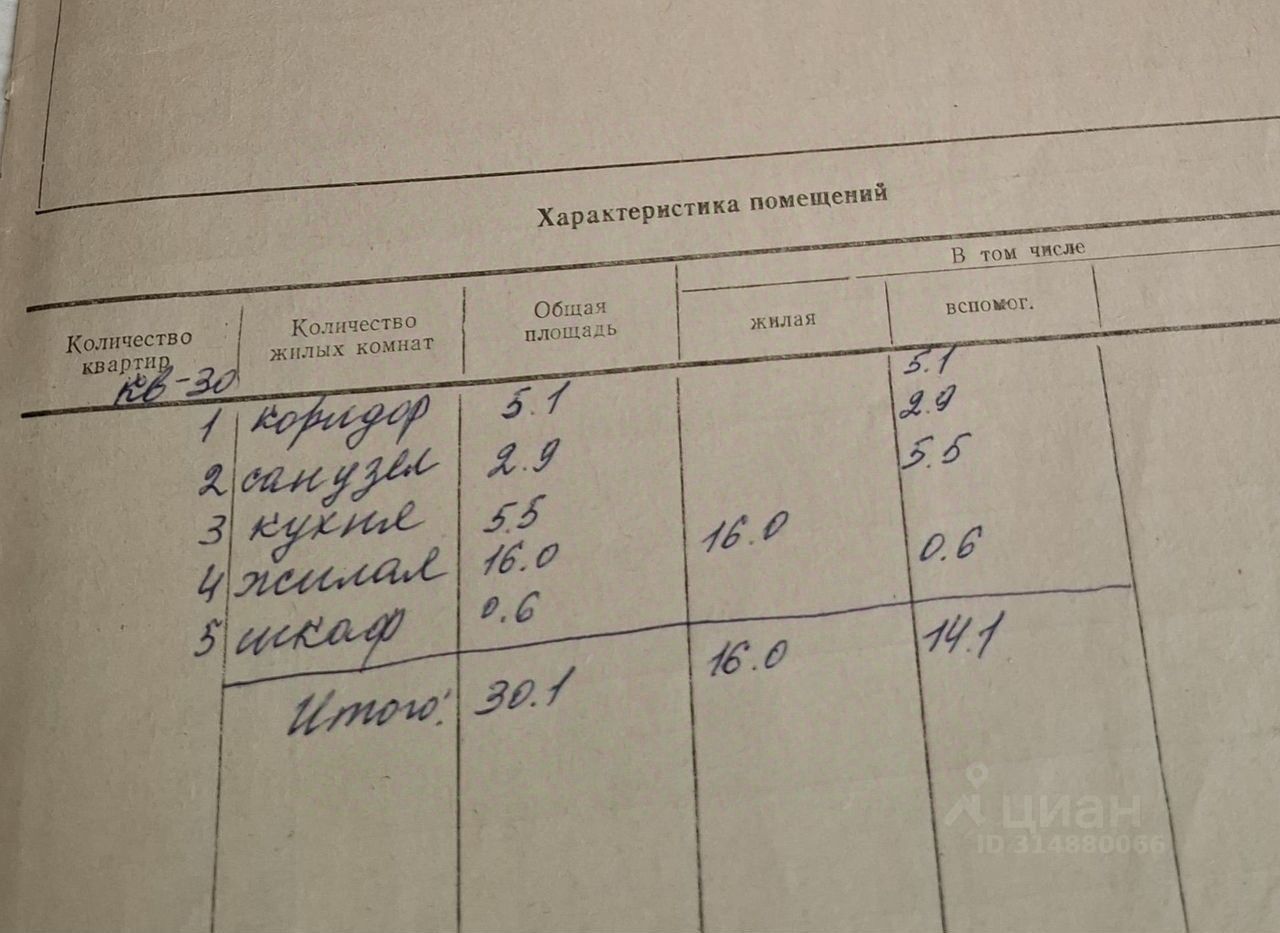 Характеристика помещений
В том числе
Количество квартир
Количество жилых комнат
Общая площадь
жилая
вспомог.
кв-30
1 коридор 5.1 5.1
2 санузел 2.9 2.9
3 кухня 5.5 5.5
4 жилая 16.0 16.0
5 шкаф 0.6 0.6
Итого: 30.1 16.0 14.1
циан
ID 314880066